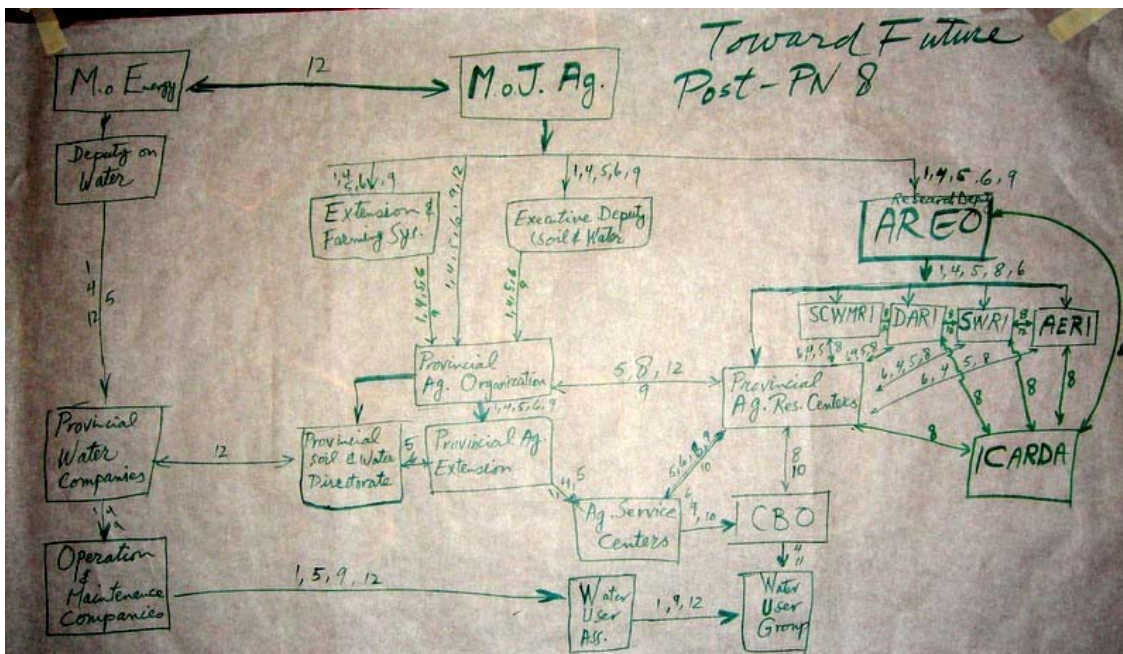 Toward Future
Post-PN 8
M.o Energy
12
M.o.J. Ag.
Deputy on
Water
1,4
5,6,9
1,4,5,6,9,12
1,4,5,6,9
1,4,5,6,9
Extension &
Farming Sys.
Executive Deputy
Soil & Water
Research Dept
AREO
1
4
12
5
1,4,5,6
9
1,4,5,6
9
1,4,5,8,6
SCWMRI
8
12
DARI
8
12
SWRI
8
12
AERI
6,4,5,8
6,4,5,8
6,4,5,8
6,4 5,8
Provincial
Ag. Organization
5,8,12
9
Provincial
Ag. Res. Centers
8
8
8
8
ICARDA
1,4,5,6,9
Provincial
Water
Companies
12
Provincial
Soil & Water
Directorate
5
Provincial Ag.
Extension
1,4,5
5,6,8,9
10
8
10
Ag. Service
Centers
6
9,10
CBO
4
11
Operation
&
Maintenance
Companies
1,5,9,12
Water
User
Ass.
1,9,12
Water
User
Group